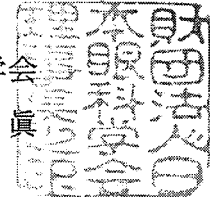 会
眞
財団法人日
本眼科学会